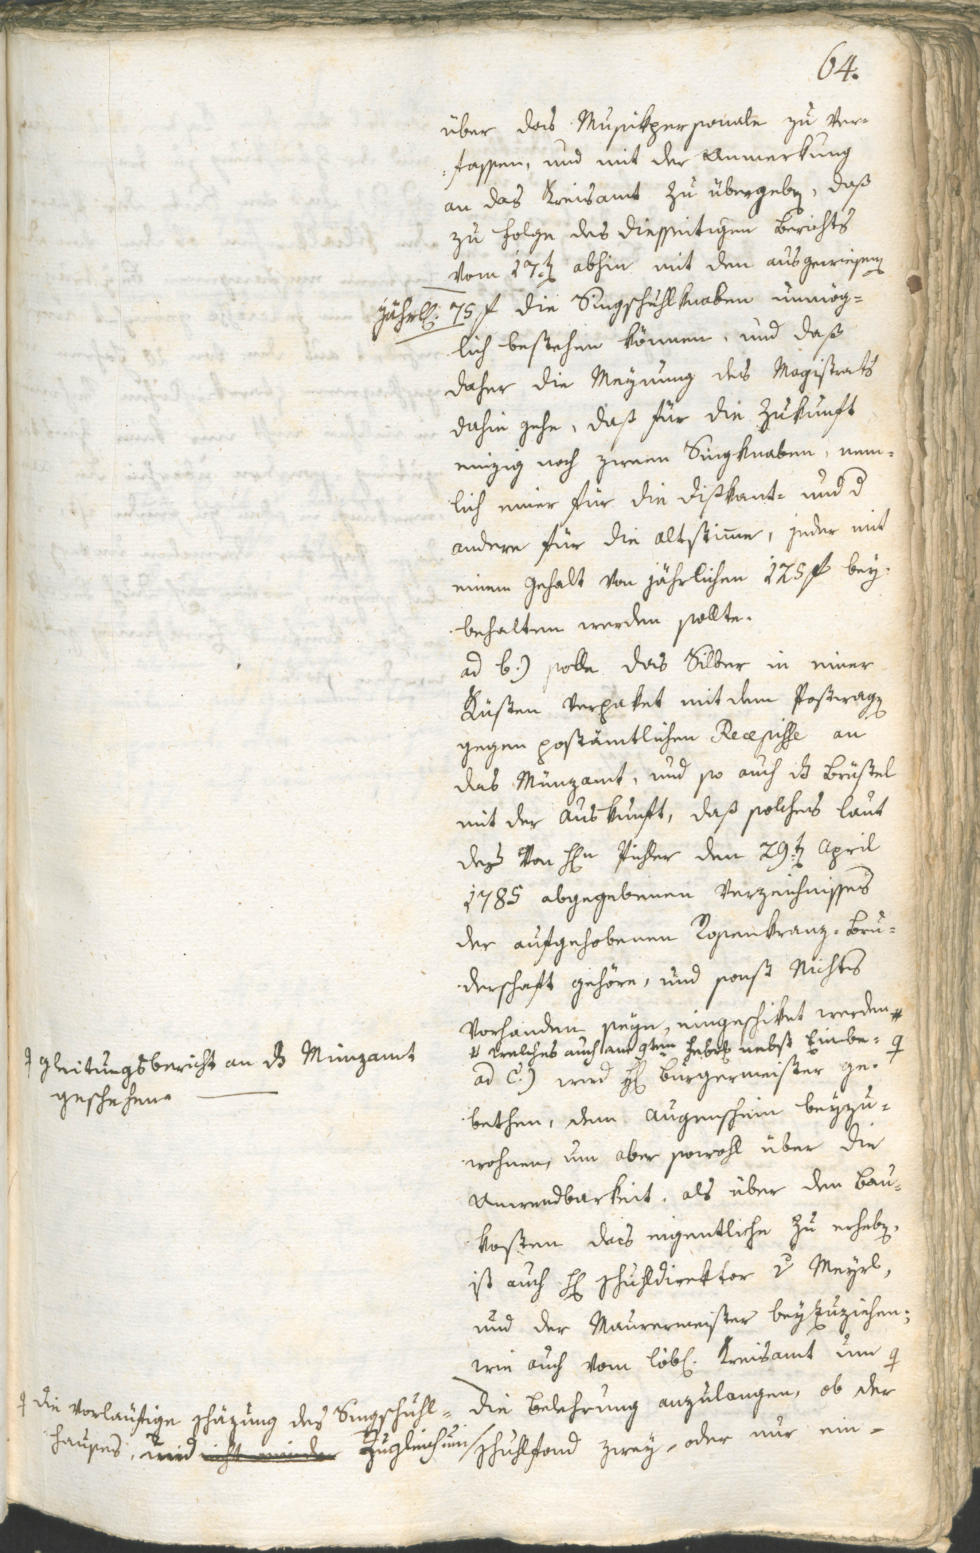 64.
über das Musikpersonale zu ver-
fassen, und mit der Anmerkung
an das Kreisamt zu übergeben, daß
zu Folge des diesseitigen Berichts
vom 17.ten abhin mit den ausgewiesenen
jährl. 75 f die Singschuhlknaben unmög-
lich bestehen können, und daß
daher die Meynung des Magistrats
dahin gehe, daß für die Zukunft
einzig noch zween Singknaben, nem-
lich einer für die Diskant- und d
andere für die Altstimme, jeder mit
einem Gehalt von jährlichen 125 f bey-
behalten werden sollte.
ad b.) solle das Silber in einer
Küsten verpaket mit dem Postwagen
gegen postämtlichen Recepisse an
das Münzamt, und so auch
mit der Auskunft, daß solches laut
des von Hn Pichler den 29.ten April
1785 abgegebenen Verzeichnisses
der aufgehobenen Rosenkranz-Bru-
derschaft gehöre, und sonst Nichts
vorhanden seyn, eingeschikt werden #
# welches auch am 9ten nebst Einbe-
gleitungsbericht an dz Münzamt
geschehen.
ad C.) wird H. Bürgermeister ge-
bethen, dem Augenschein beyzu-
wohnen, um aber sowohl über die
Anwendbarkeit, als über den Bau-
kosten das eigentliche zu erheben,
ist auch H. Schuhldirektor v Meyrl,
und der Maurermeister beyzuziehen;
wie auch vom löbl. Kreisamt um
die vorläufige Schäzung des Singschuhl-
hauses, und nicht minder zugleich um
die Belehrung anzulangen, ob der
Schuhlfond zwey- oder nur ein-